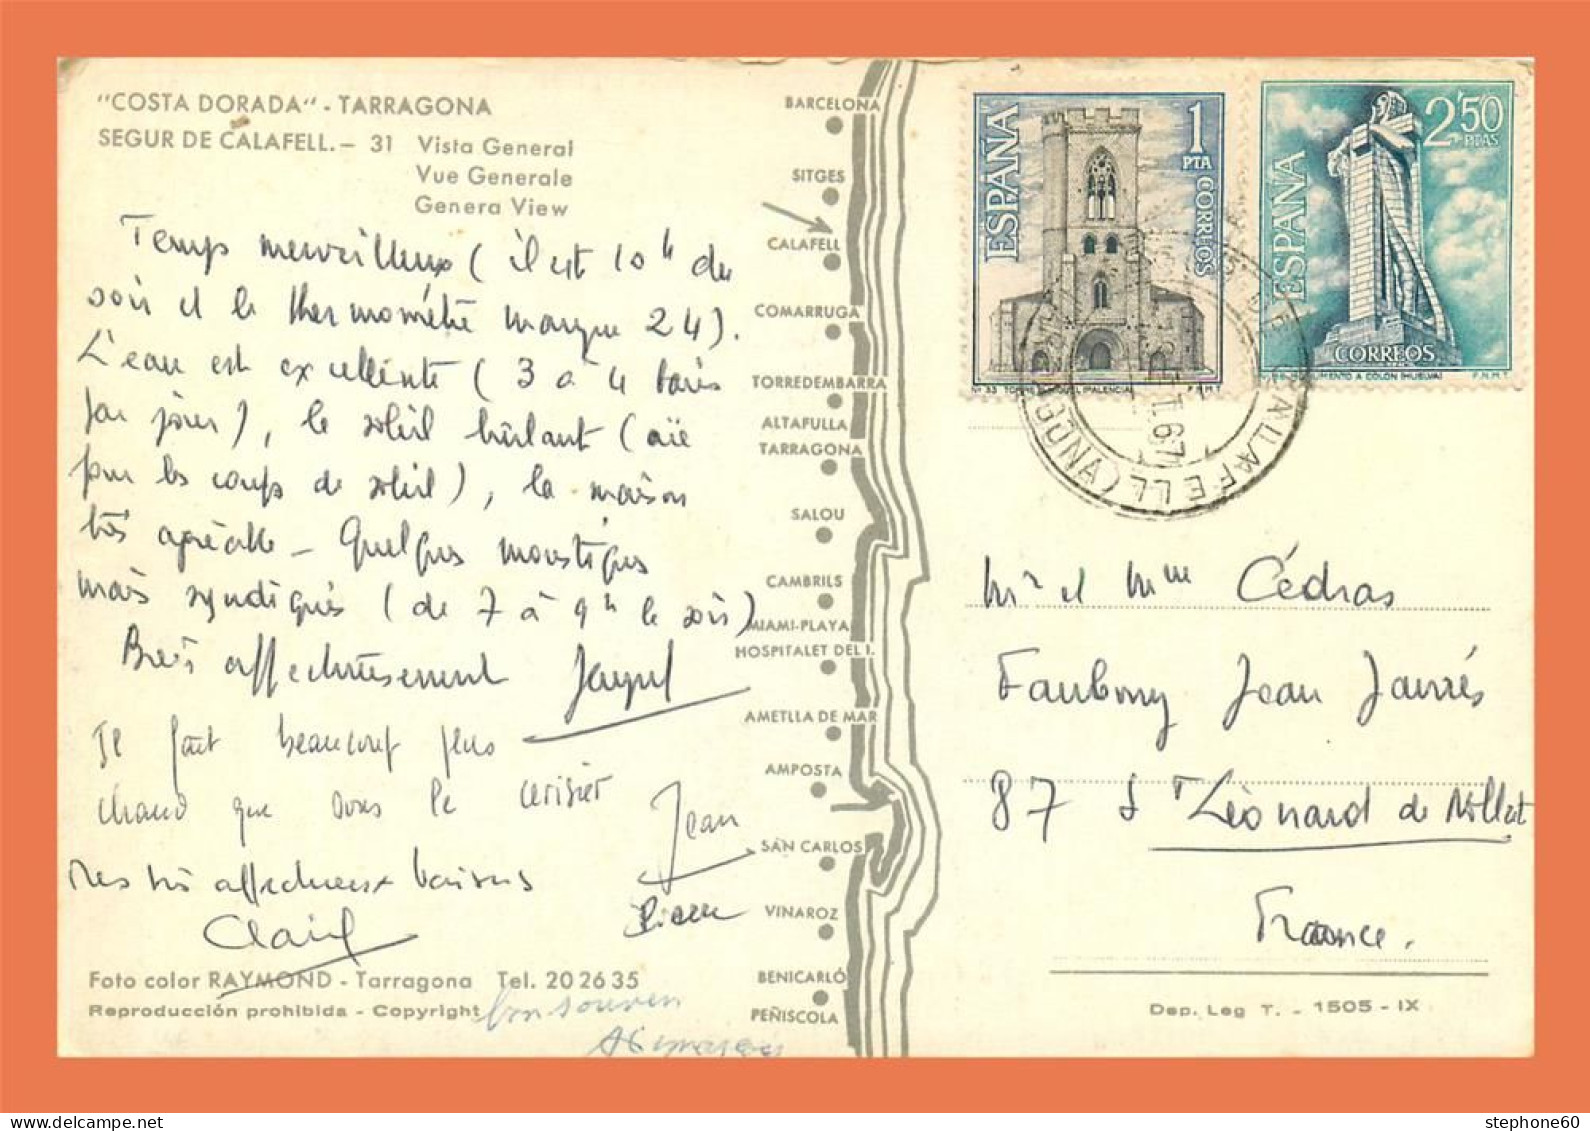 "COSTA DORADA" - TARRAGONA
SEGUR DE CALAFELL. - 31 Vista General
Vue Generale
Genera View
Temps merveilleux (il est 10h du
soir et le thermomètre marque 24).
L'eau est excellente (3 à 4 bains
par jour), le soleil brûlant (aïe
pour les coups de soleil), la maison
très agréable - Quelques moustiques
mais syndiqués (de 7 à 9h le soir)
Bien affectueusement
Il fait beaucoup plus
chaud que sous le cerisier
Jean
Mes très affectueux baisers
Claire
Pierre
Foto color RAYMOND - Tarragona Tel. 20 26 35
Reproducción prohibida - Copyright
bon souvenir
BARCELONA
SITGES
CALAFELL
COMARRUGA
TORREDEMBARRA
ALTAFULLA
TARRAGONA
SALOU
CAMBRILS
MIAMI-PLAYA
HOSPITALET DEL I.
AMETLLA DE MAR
AMPOSTA
SAN CARLOS
VINAROZ
BENICARLÓ
PEÑISCOLA
ESPAÑA
1
PTA
CORREOS
F.N.M.T.
ESPAÑA
2'50
PTAS
CORREOS
MONUMENTO A COLON (HUELVA)
F.N.M.T.
CALAFELL (TARRAGONA)
67
Mr et Mme Cédras
Faubourg Jean Jaurès
87 St Léonard de Noblat
France.
Dep. Leg T. - 1505 - IX
stephone60